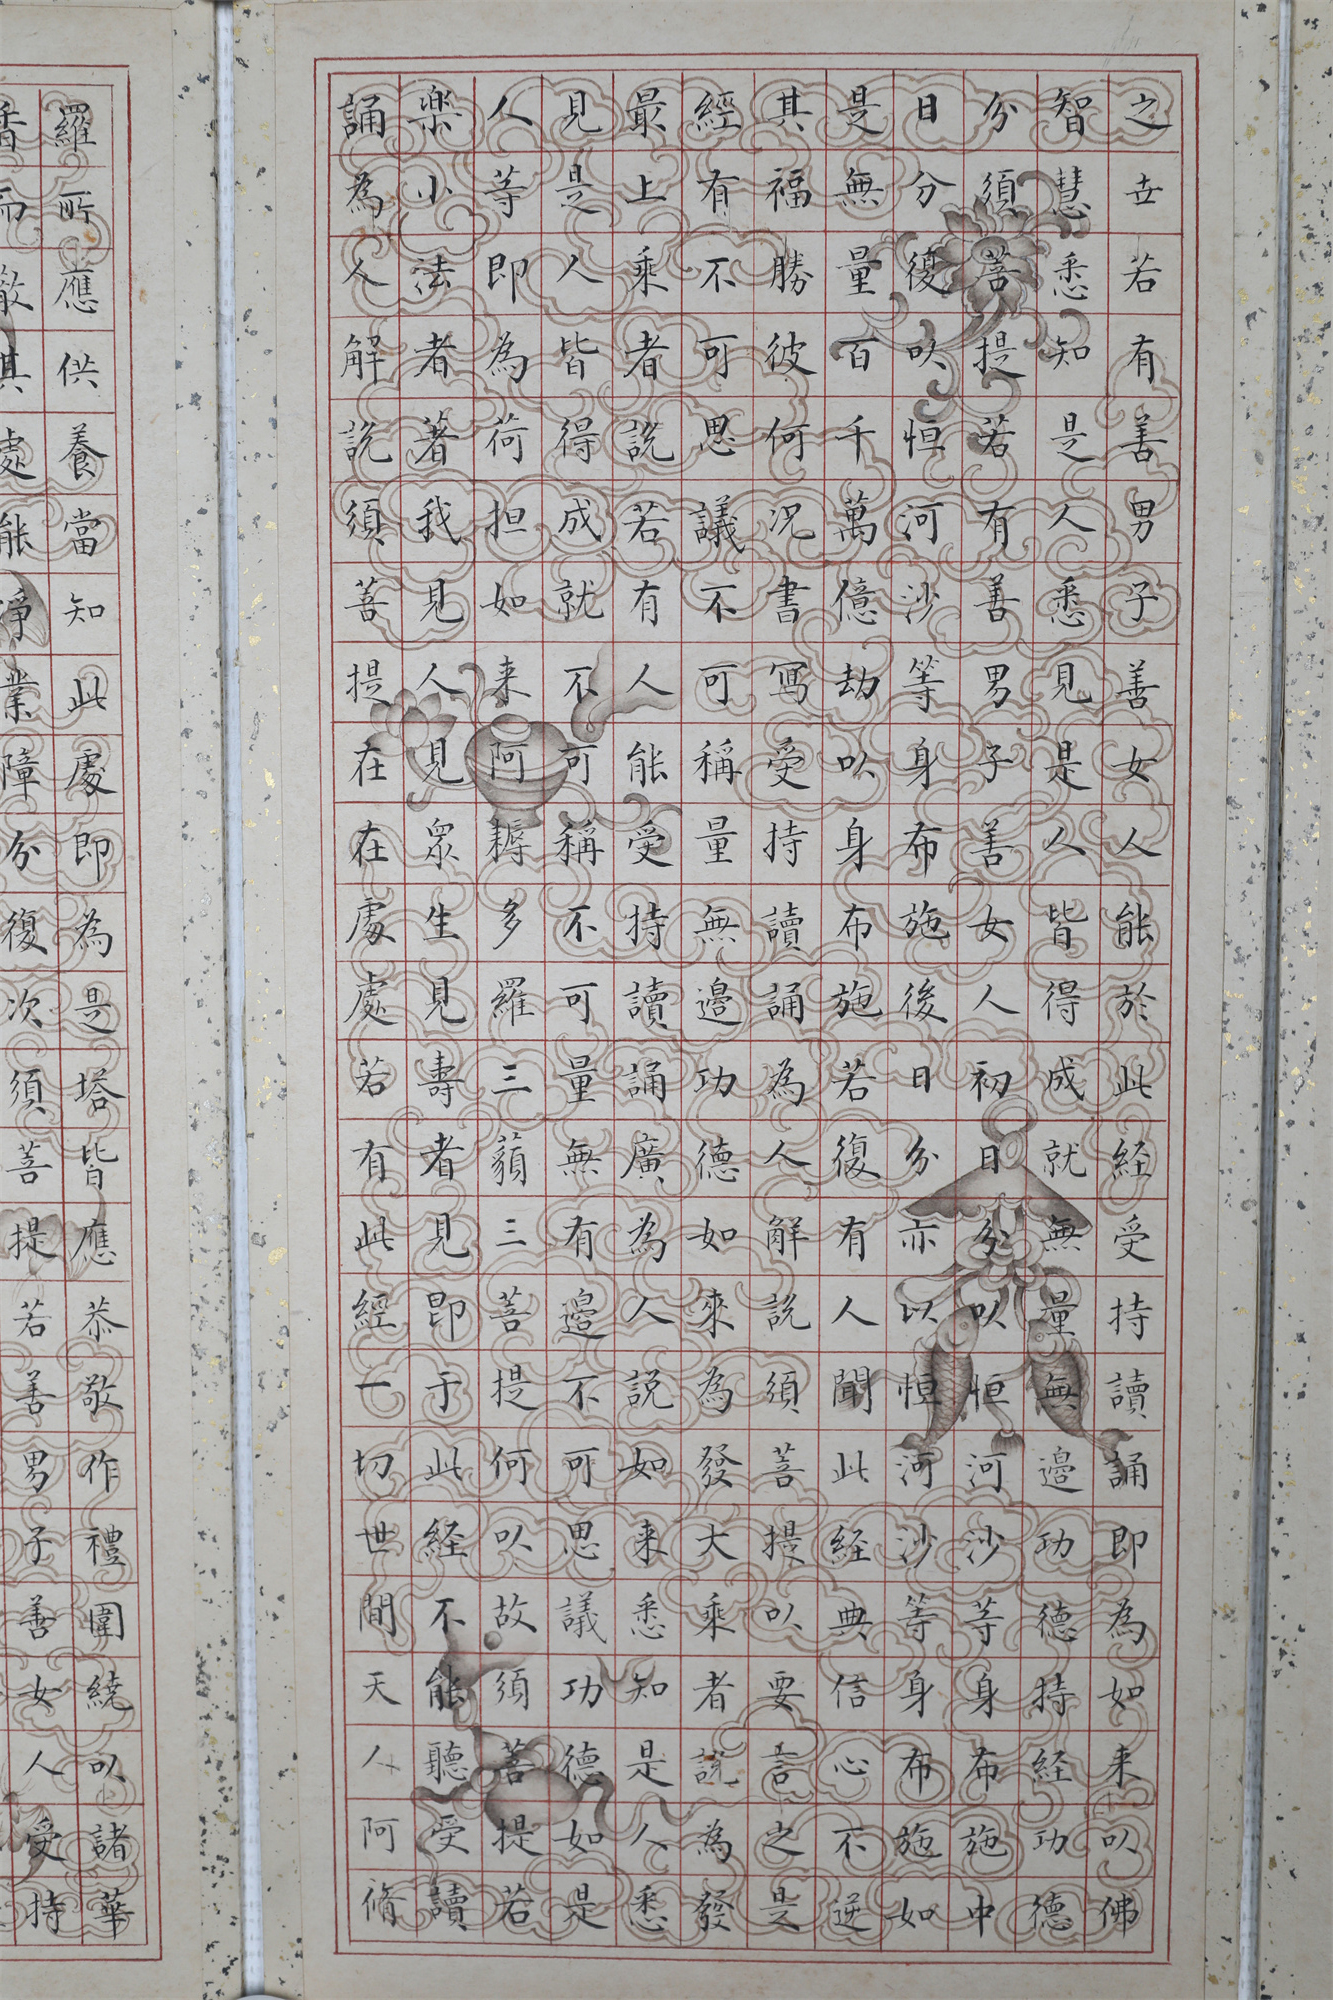 之世若有善男子善女人能於此経受持讀誦即為如来以佛
智慧悉知是人悉見是人皆得成就無量無邊功德持経功德
分須菩提若有善男子善女人初日分以恒河沙等身布施中
日分復以恒河沙等身布施後日分亦以恒河沙等身布施如
是無量百千萬億劫以身布施若復有人聞此経典信心不逆
其福勝彼何況書寫受持讀誦為人解說須菩提以要言之是
經有不可思議不可稱量無邊功德如來為發大乘者說為發
最上乘者說若有人能受持讀誦廣為人說如来悉知是人悉
見是人皆得成就不可稱不可量無有邊不可思議功德如是
人等即為荷担如来阿耨多羅三藐三菩提何以故須菩提若
樂小法者著我見人見眾生見壽者見即于此経不能聽受讀
誦為人解說須菩提在在處處若有此經一切世間天人阿脩
羅所應供養當知此處即為是塔皆應恭敬作禮圍繞以諸華
香而散其處能淨業障分復次須菩提若善男子善女人受持